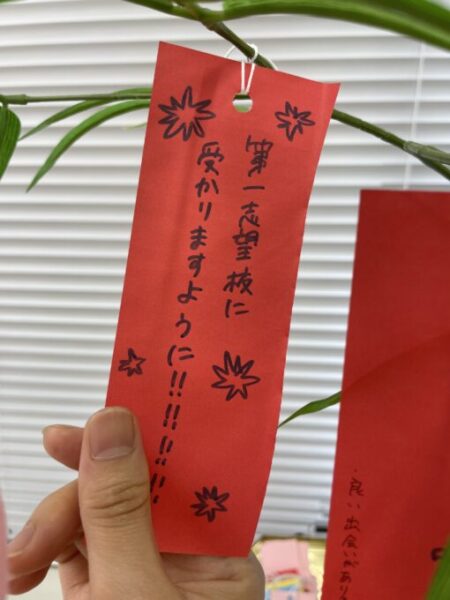 第一志望校に
受かりますように!!!!!!!!
・良い出会いがあり